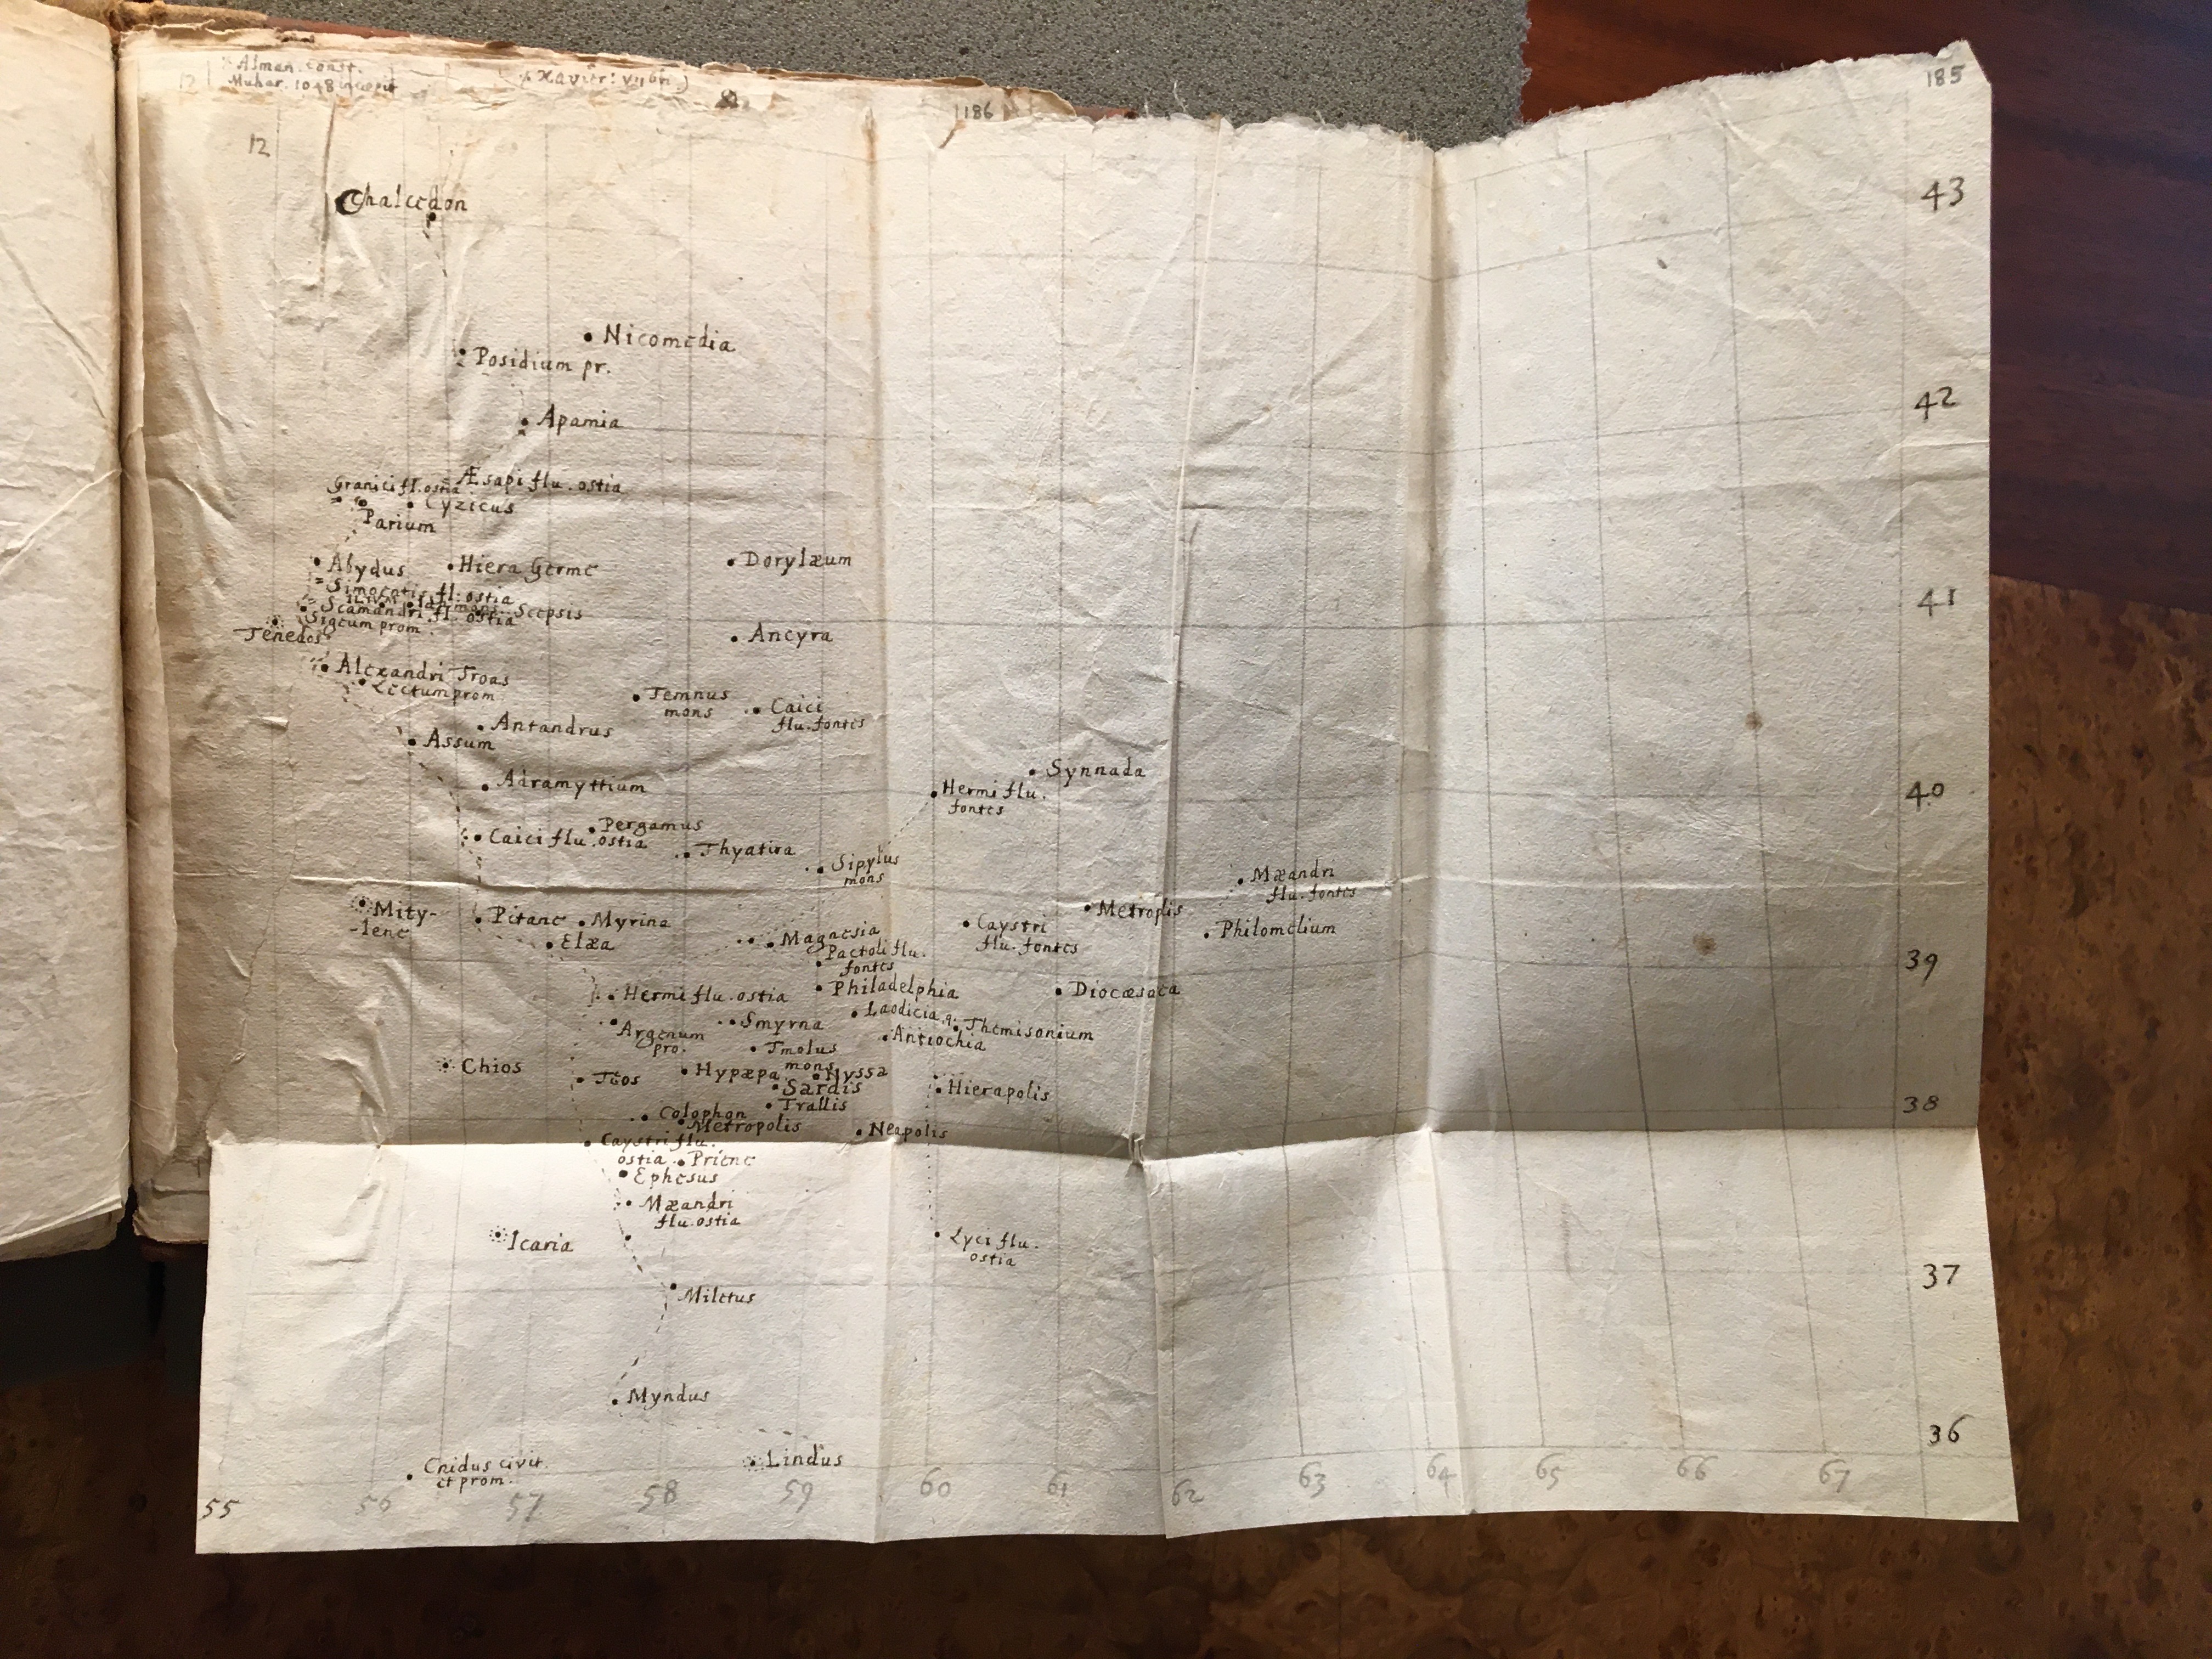 Alman. const.
Muhar. 1048 incepit
186
185
12
43
Chalcedon
Nicomedia
Posidium pr.
42
Apamia
Æsapi flu. ostia
Granici fl. ostia
Cyzicus
Parium
Abydus
Hiera Germe
Dorylæum
Simoentis fl. ostia
Ilium
Ida mons
Scepsis
Scamandri fl. ostia
Sigeum prom.
Tenedos
41
Ancyra
Alexandri Troas
Lectum prom
Temnus
mons
Caici
flu. fontes
Antandrus
Assum
Synnada
Adramyttium
Hermi flu.
fontes
40
Pergamus
Caici flu. ostia
Thyatira
Sipylus
mons
Mæandri
flu. fontes
Mity-
-lene
Pitane
Myrina
Elæa
Metroplis
Caystri
flu. fontes
Philomelium
Magnesia
Pactoli flu.
fontes
39
Hermi flu. ostia
Philadelphia
Diocæsaea
Laodicia
Argenum
pro.
Smyrna
Themisonium
Antiochia
Tmolus
mons
Chios
Teos
Hypæpa
Nyssa
Sardis
Hierapolis
Trallis
38
Colophon
Metropolis
Neapolis
Caystri flu.
ostia
Priene
Ephesus
Mæandri
flu. ostia
Icaria
Lyci flu.
ostia
37
Miletus
Myndus
36
Cnidus civit.
et prom.
Lindus
55 56 57 58 59 60 61 62 63 64 65 66 67